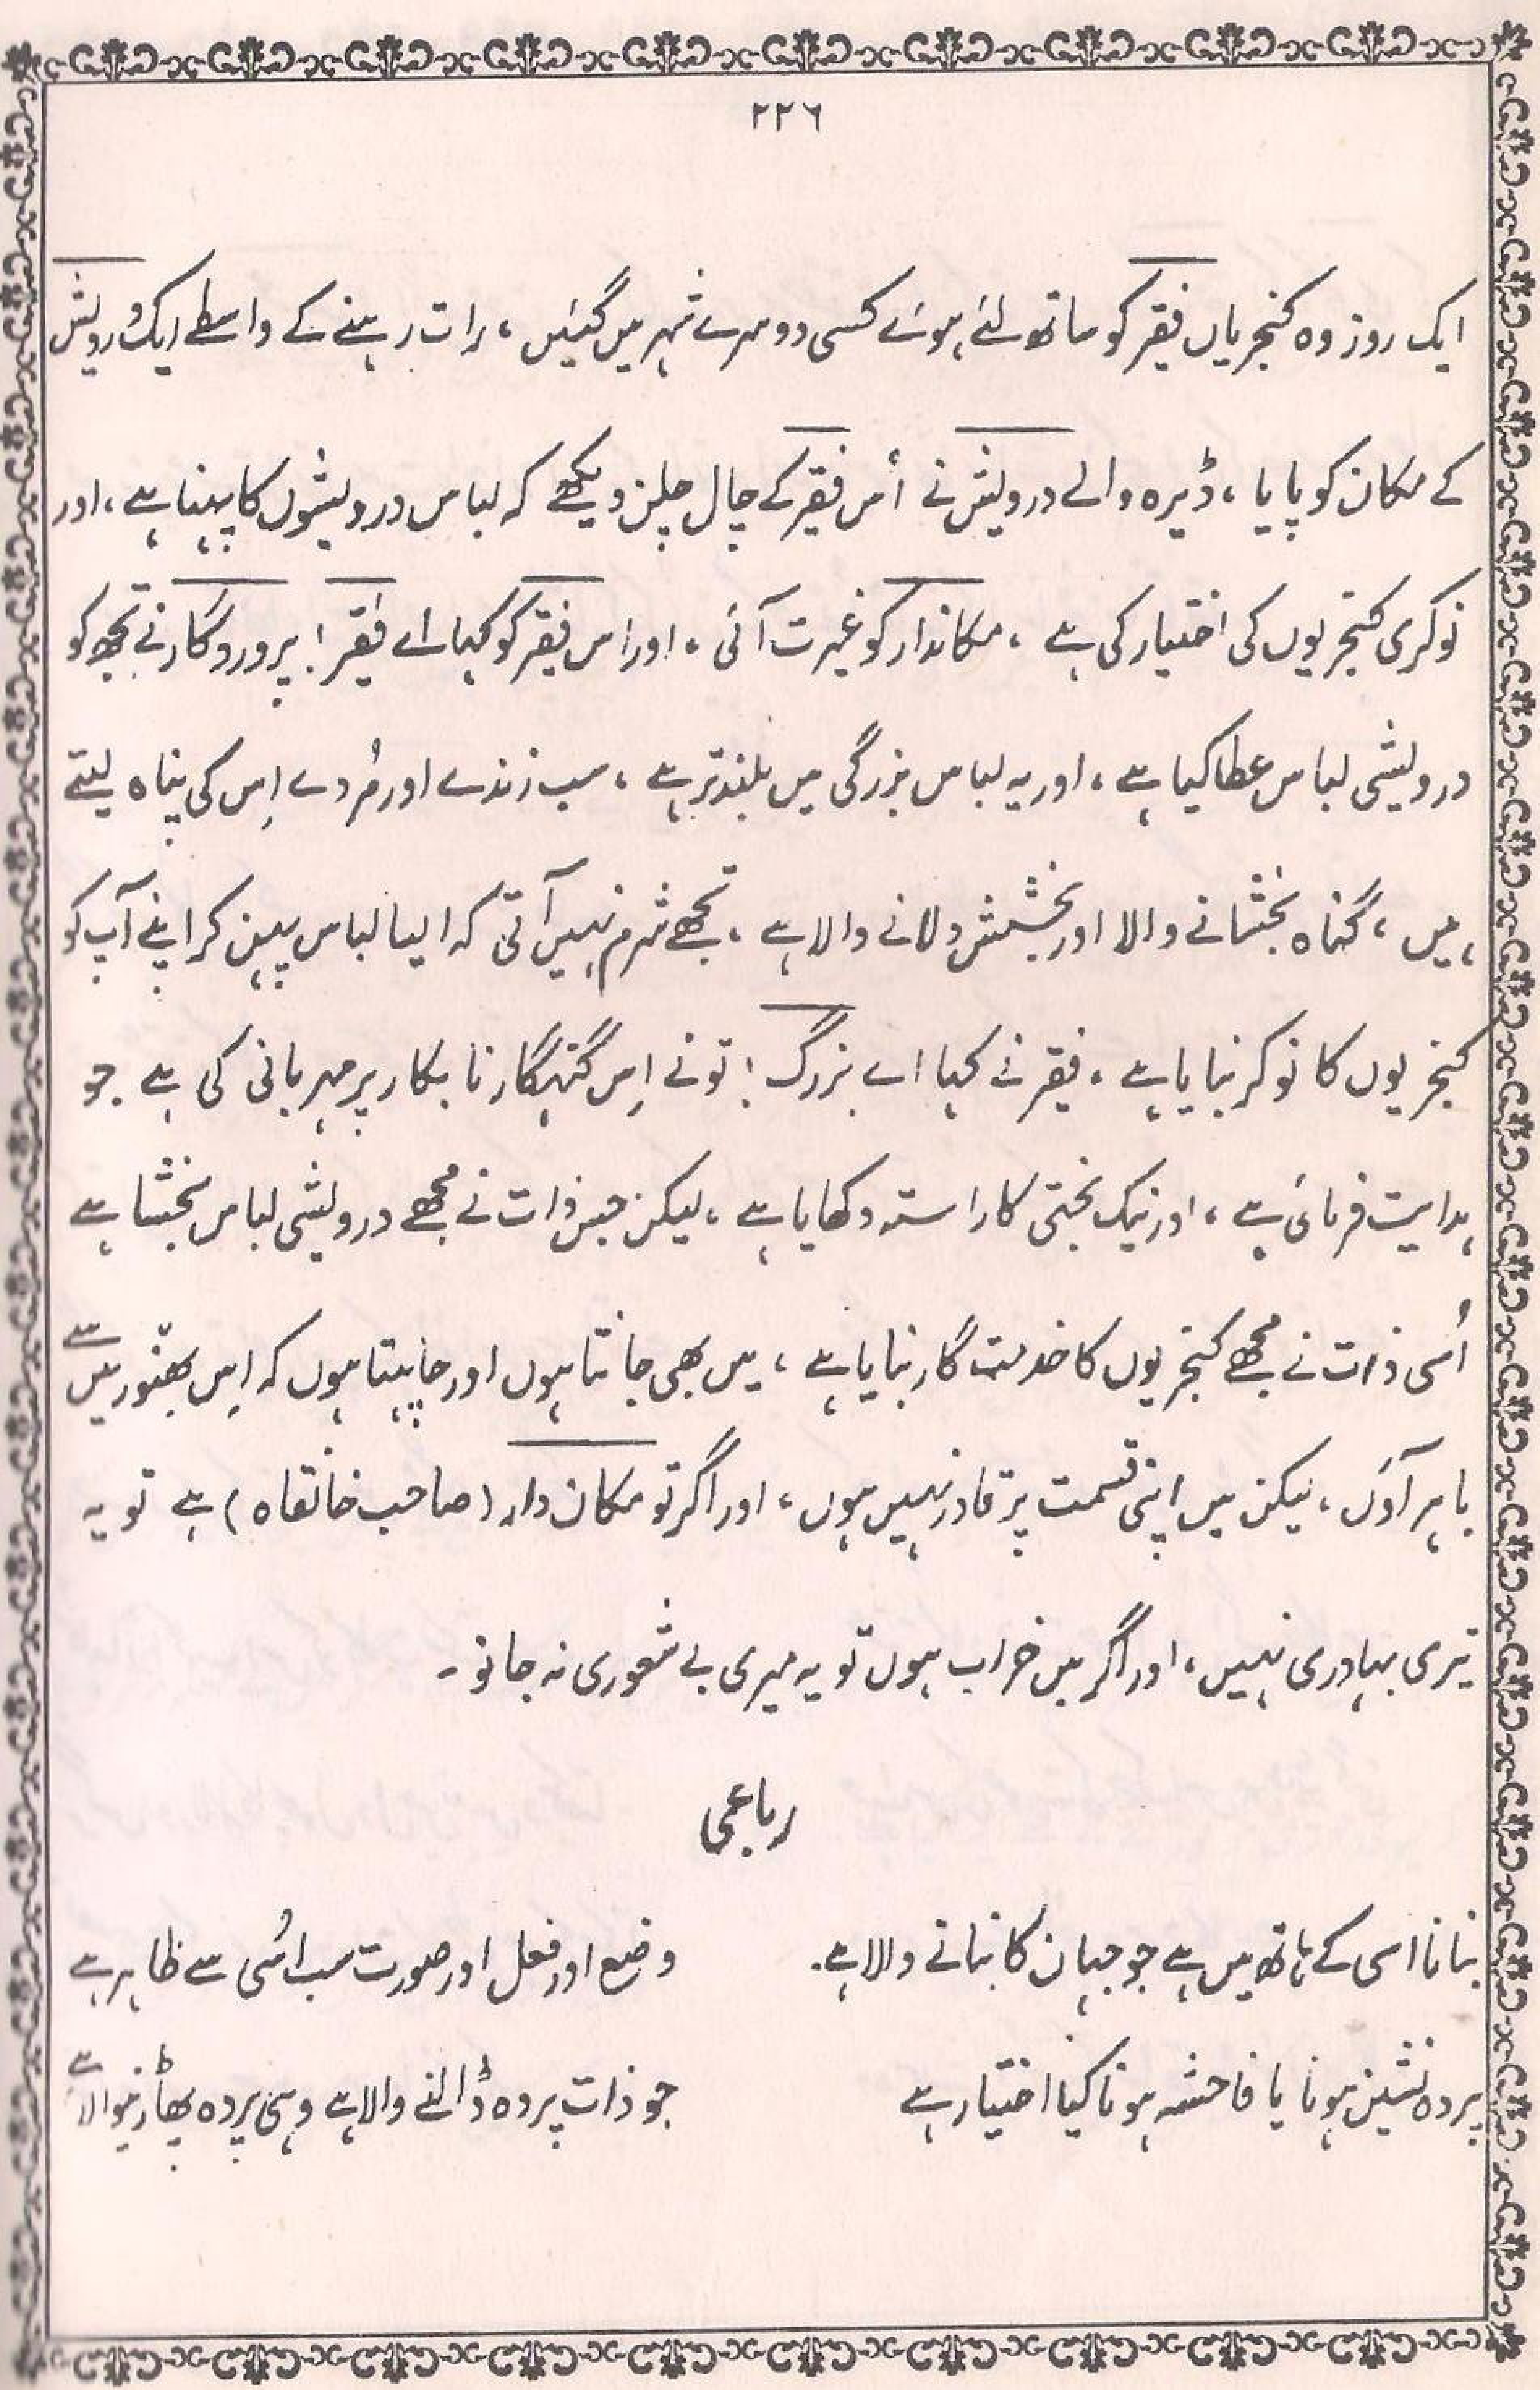 ۲۲۶
ایک روز وہ کنجریاں فقیر کو ساتھ لئے ہوئے کسی دوسرے شہر میں گئیں ، رات رہنے کے واسطے ایک درویش
کے مکان کو پایا ، ڈیرہ والے درویش نے اُس فقیر کے چال چلن دیکھے کہ لباس درویشوں کا پہنا ہے ، اور
نوکری کنجریوں کی اختیار کی ہے ، مکاندار کو غیرت آئی ، اور اس فقیر کو کہا اے فقیر ! پروردگار نے تجھ کو
درویشی لباس عطا کیا ہے ، اور یہ لباس بزرگی میں بلند تر ہے ، سب زندے اور مُردے اِس کی پناہ لیتے
ہیں ، گناہ بخشانے والا اور بخشش دلانے والا ہے ، تجھے شرم نہیں آتی کہ ایسا لباس پہن کر اپنے آپ کو
کنجریوں کا نوکر بنایا ہے ، فقیر نے کہا اے بزرگ ! تو نے اِس گنہگار نابکار پر مہربانی کی ہے جو
ہدایت فرمائی ہے ، اور نیک بختی کا راستہ دکھایا ہے ، لیکن جس ذات نے مجھے درویشی لباس بخشا ہے
اُسی ذات نے مجھے کنجریوں کا خدمت گار بنایا ہے ، میں بھی جانتا ہوں اور چاہتا ہوں کہ اِس بھنور میں سے
باہر آؤں ، لیکن میں اپنی قسمت پر قادر نہیں ہوں ، اور اگر تو مکان دار (صاحب خانقاہ) ہے تو یہ
تیری بہادری نہیں ، اور اگر میں خراب ہوں تو یہ میری بے شعوری نہ جانو ۔
رباعی
بنانا اسی کے ہاتھ میں ہے جو جہان کا بنانے والا ہے. وضع اور فعل اور صورت سب اسُی سے ظاہر ہے
پردہ نشین ہونا یا فاحشہ ہونا کیا اختیار ہے جو ذات پردہ ڈالنے والا ہے وہی پردہ پھاڑنیوالا ہے